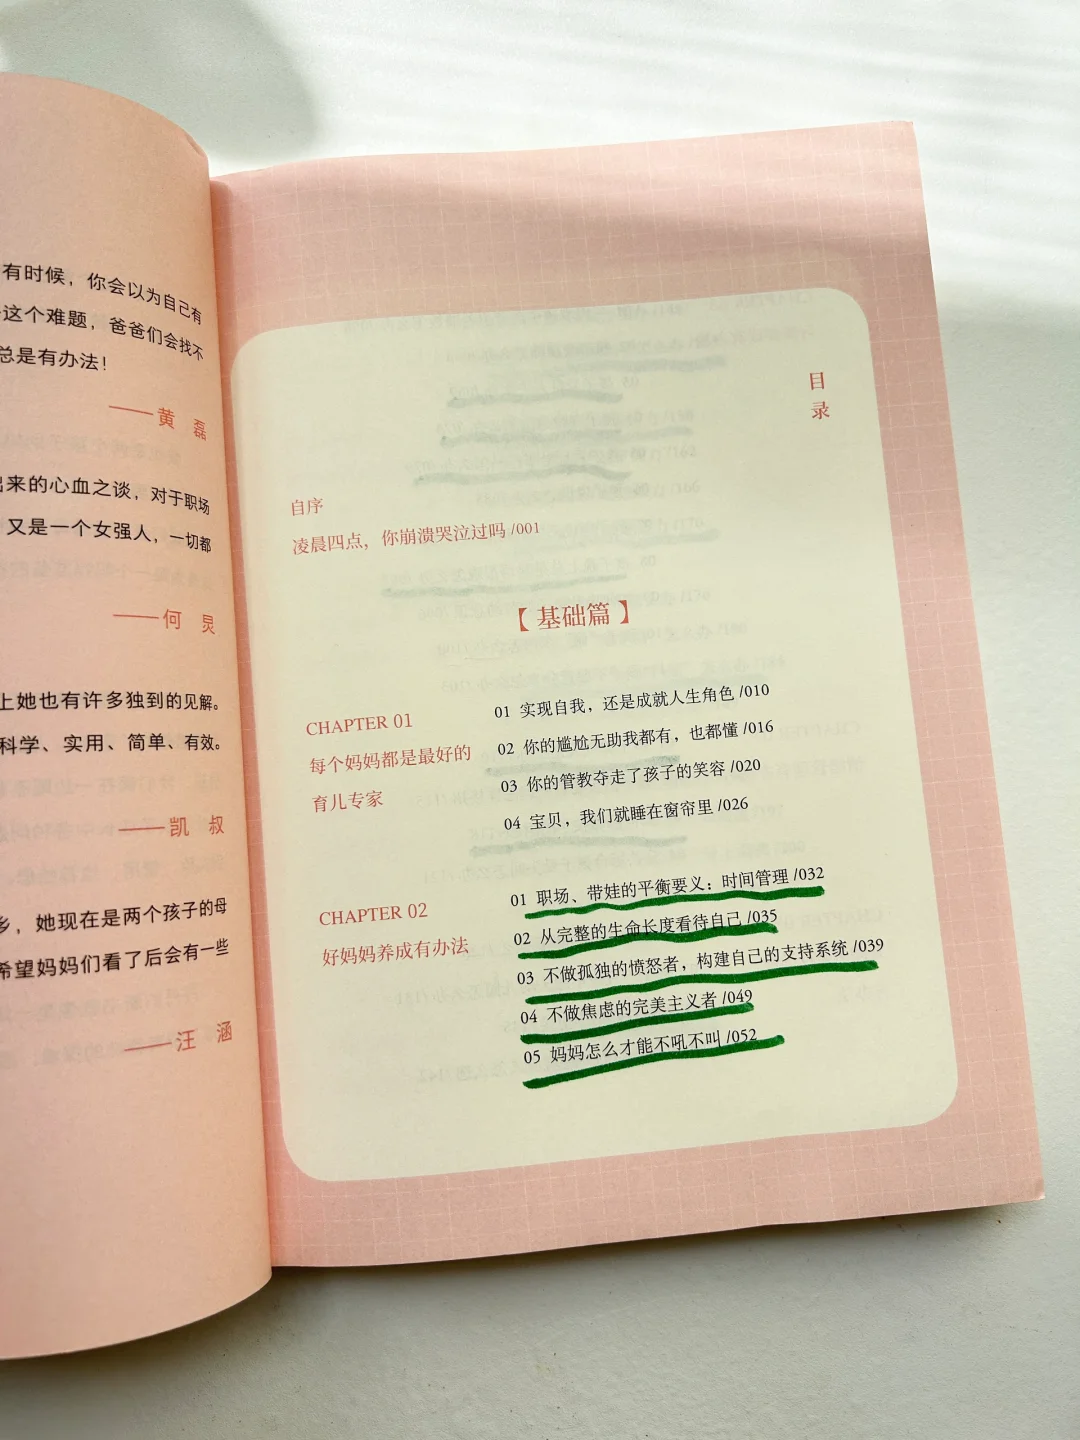 有时候，你会以为自己有
这个难题，爸爸们会找不
总是有办法！
——黄 磊
出来的心血之谈，对于职场
又是一个女强人，一切都
——何 炅
上她也有许多独到的见解。
科学、实用、简单、有效。
——凯 叔
乡，她现在是两个孩子的母
希望妈妈们看了后会有一些
——汪 涵
目录
自序
凌晨四点，你崩溃哭泣过吗 /001
【基础篇】
CHAPTER 01
每个妈妈都是最好的
育儿专家
01 实现自我，还是成就人生角色 /010
02 你的尴尬无助我都有，也都懂 /016
03 你的管教夺走了孩子的笑容 /020
04 宝贝，我们就睡在窗帘里 /026
CHAPTER 02
好妈妈养成有办法
01 职场、带娃的平衡要义：时间管理 /032
02 从完整的生命长度看待自己 /035
03 不做孤独的愤怒者，构建自己的支持系统 /039
04 不做焦虑的完美主义者 /049
05 妈妈怎么才能不吼不叫 /052